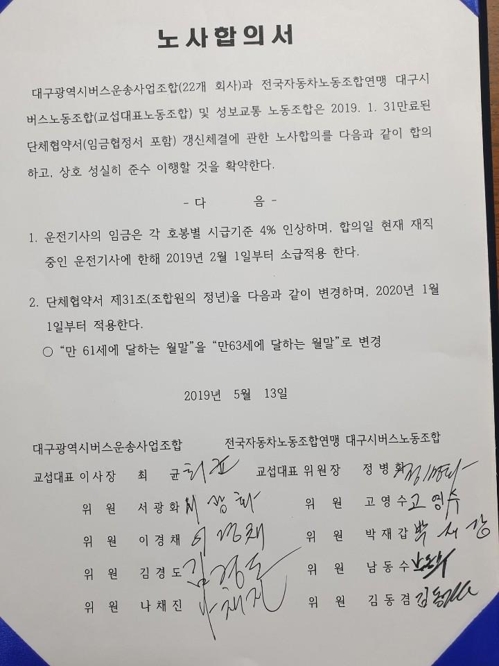 노사합의서
대구광역시버스운송사업조합(22개 회사)과 전국자동차노동조합연맹 대구시
버스노동조합(교섭대표노동조합) 및 성보교통 노동조합은 2019. 1. 31만료된
단체협약서(임금협정서 포함) 갱신체결에 관한 노사합의를 다음과 같이 합의
하고, 상호 성실히 준수 이행할 것을 확약한다.
- 다 음 -
1. 운전기사의 임금은 각 호봉별 시급기준 4% 인상하며, 합의일 현재 재직
중인 운전기사에 한해 2019년 2월 1일부터 소급적용 한다.
2. 단체협약서 제31조(조합원의 정년)을 다음과 같이 변경하며, 2020년 1월
1일부터 적용한다.
○ “만 61세에 달하는 월말”을 “만63세에 달하는 월말”로 변경
2019년 5월 13일
대구광역시버스운송사업조합 전국자동차노동조합연맹 대구시버스노동조합
교섭대표 이사장 최 균 교섭대표 위원장 정병화
위 원 서광화 서광화 위 원 고영수 고영수
위 원 이경채 이경채 위 원 박재갑
위 원 김경도 김경도 위 원 남동수
위 원 나채진 나채진 위 원 김동겸